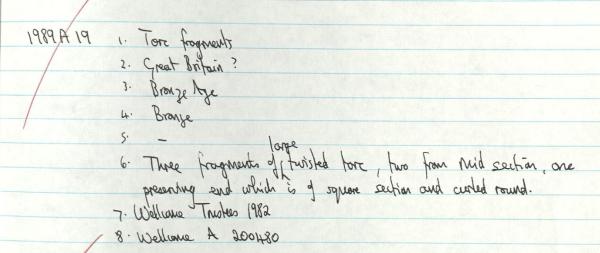 1989A19 1. Torc fragments
2. Great Britain ?
3. Bronze Age
4. Bronze
5. —
6. Three fragments of large twisted torc, two from mid section, one
presenting end which is of square section and curled round.
7. Wellcome Trustees 1982
8. Wellcome A 200480